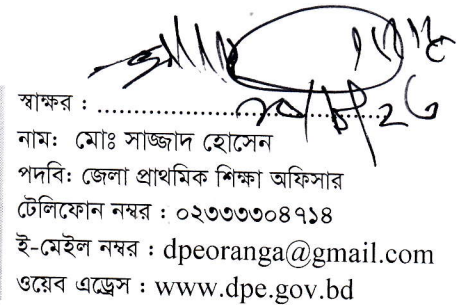 স্বাক্ষর : ........................................
নাম: মোঃ সাজ্জাদ হোসেন
পদবি: জেলা প্রাথমিক শিক্ষা অফিসার
টেলিফোন নম্বর : ০২৩৩৩৩০৪৭১৪
ই-মেইল নম্বর : dpeoranga@gmail.com
ওয়েব এড্রেস : www.dpe.gov.bd